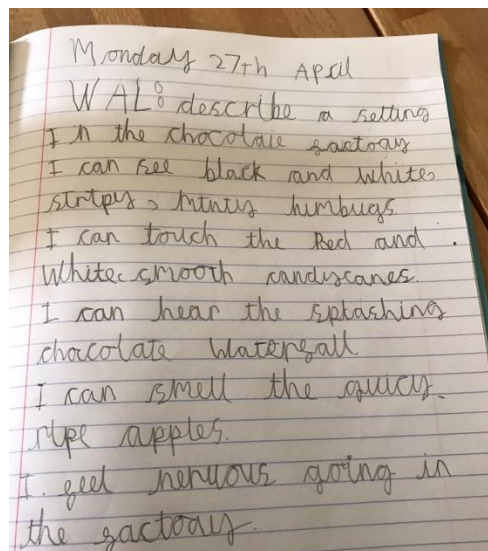 Monday 27th April
WAL: describe a setting
In the chocolate factoay
I can see black and white,
stripy, mintiy humbugs.
I can touch the Red and
White, smooth candycanes.
I can hear the splashing
chocolate Waterfall.
I can smell the guicy,
ripe apples.
I feel nervous going in
the factoay.